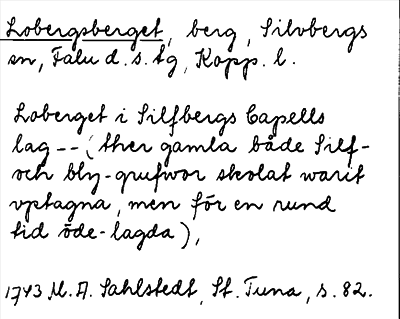 Lobergsberget, berg, Silvbergs
sn, Falu d. s. tg, Kopp. l.
Loberget i Silfbergs Capells
lag -- (ther gamla både Silf-
och bly-grufwor skolat warit
vptagna, men för en rund
tid öde-lagda),
1743 M. A. Sahlstedt, St. Tuna, s. 82.